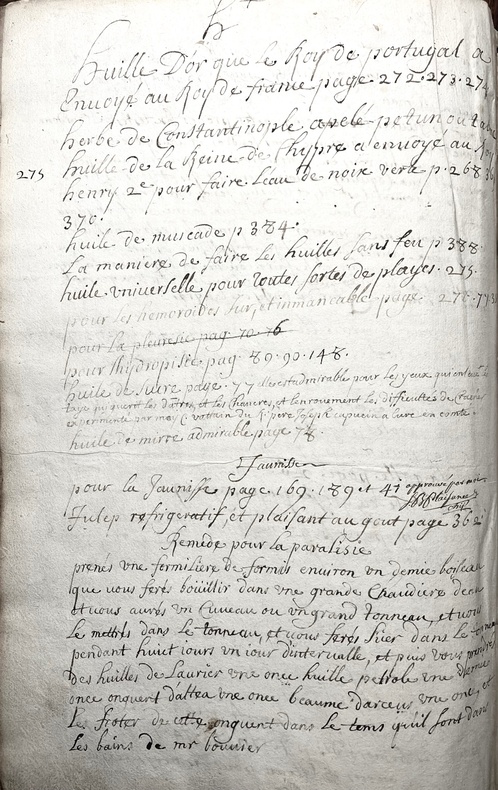 H
huille D'or que le Roy de portugal a
Envoyé au Roy de franie page. 272. 273. 274
herbe de Constantinople apelé petun ou
275 huille de la Reine de Chypre a envoyé au Roy
henry 2e pour faire Leau de noix verte p. 268
370.
huile de muscade p 384.
La maniere de faire Les huilles sans feu p 388.
huile vniverselle pour toutes sortes de playes. 275.
pour les hemoroides sur, et inmancable page 276.
pour la pleuresie pag 70. 76
pour lhydropisie pag. 89. 90. 148.
huile de sucre page. 77 elle est admirable pour les yeux qui ont
taye, les dartres, et les Chancres, et les difficultés
experimenté par moy C. votain du R. pere Joseph capucin a livre en comte.
huile de mirre admirable page 78
Jaunisse
pour la Jaunisse page. 169. 189 et 41 approuvé par moi
Julep refrigeratif, et plaisant au gout page 362
Remede pour la paralisie
prenés vne formiliere de formis environ vn demie boisseau
que vous ferés boüillir dans vne grande Chaudiere
et vous aurés vn Cuveau ou vn grand tonneau, et vous
Le mettrés dans Le tonneau, et vous ferés suer dans Le
pendant huit iours vn iour dintervalle, et puis vous prendrés
Des huilles de Laurier vne once huille petrole vne demie
once onguent daltea vne once beaume darceus vne once, et
Les froter de onguent dans Le tems qu'il sont dans
Les bains de mr bouvier